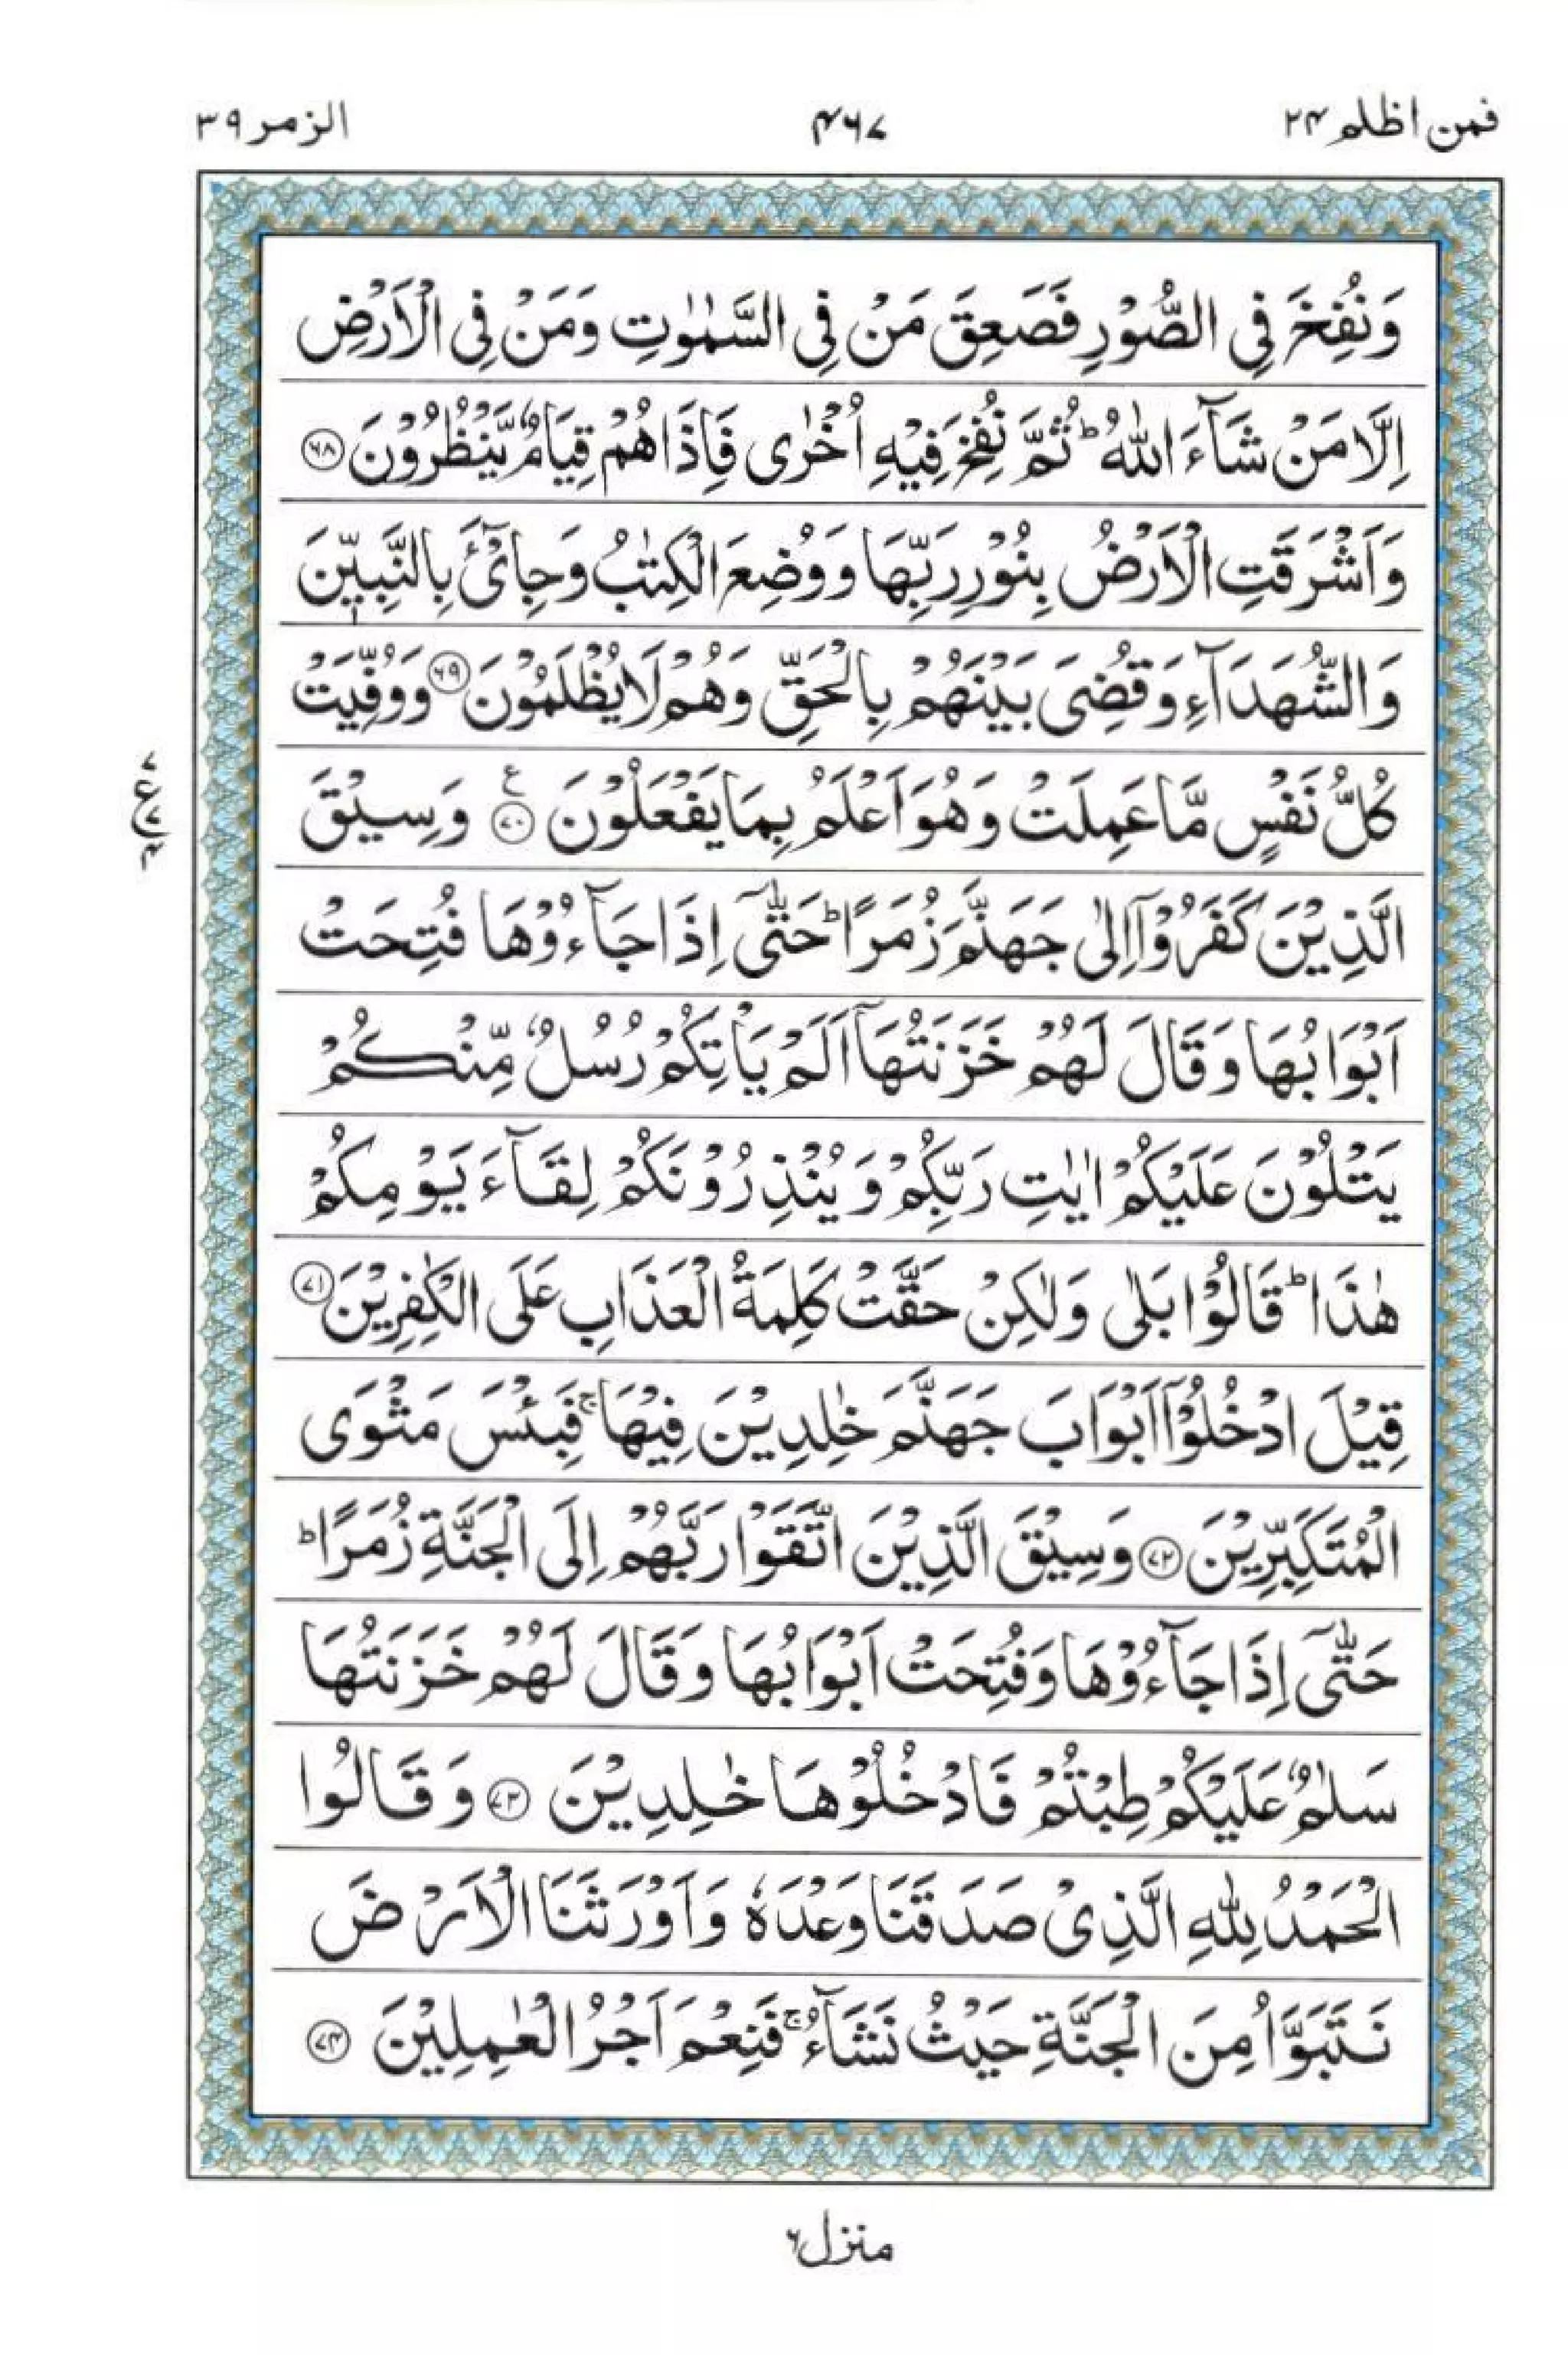 فمن اظلم ۲۴
۴۶۷
الزمر ۳۹
وَنُفِخَ فِی الصُّوْرِ فَصَعِقَ مَنْ فِی السَّمٰوٰتِ وَمَنْ فِی الْاَرْضِ
اِلَّا مَنْ شَآءَ اللّٰهُ ؕ ثُمَّ نُفِخَ فِیْهِ اُخْرٰی فَاِذَا هُمْ قِیَامٌ یَّنْظُرُوْنَ ﴿۶۸﴾
وَاَشْرَقَتِ الْاَرْضُ بِنُوْرِ رَبِّهَا وَوُضِعَ الْكِتٰبُ وَجِایْٓءَ بِالنَّبِیّٖنَ
وَالشُّهَدَآءِ وَقُضِیَ بَیْنَهُمْ بِالْحَقِّ وَهُمْ لَا یُظْلَمُوْنَ ﴿۶۹﴾ وَوُفِّیَتْ
كُلُّ نَفْسٍ مَّا عَمِلَتْ وَهُوَ اَعْلَمُ بِمَا یَفْعَلُوْنَ ﴿۷۰﴾ ع وَسِیْقَ
الَّذِیْنَ كَفَرُوْۤا اِلٰی جَهَنَّمَ زُمَرًا ؕ حَتّٰۤی اِذَا جَآءُوْهَا فُتِحَتْ
اَبْوَابُهَا وَقَالَ لَهُمْ خَزَنَتُهَاۤ اَلَمْ یَاْتِكُمْ رُسُلٌ مِّنْكُمْ
یَتْلُوْنَ عَلَیْكُمْ اٰیٰتِ رَبِّكُمْ وَیُنْذِرُوْنَكُمْ لِقَآءَ یَوْمِكُمْ
هٰذَا ؕ قَالُوْا بَلٰی وَلٰكِنْ حَقَّتْ كَلِمَةُ الْعَذَابِ عَلَی الْكٰفِرِیْنَ ﴿۷۱﴾
قِیْلَ ادْخُلُوْۤا اَبْوَابَ جَهَنَّمَ خٰلِدِیْنَ فِیْهَا ۚ فَبِئْسَ مَثْوَی
الْمُتَكَبِّرِیْنَ ﴿۷۲﴾ وَسِیْقَ الَّذِیْنَ اتَّقَوْا رَبَّهُمْ اِلَی الْجَنَّةِ زُمَرًا ؕ
حَتّٰۤی اِذَا جَآءُوْهَا وَفُتِحَتْ اَبْوَابُهَا وَقَالَ لَهُمْ خَزَنَتُهَا
سَلٰمٌ عَلَیْكُمْ طِبْتُمْ فَادْخُلُوْهَا خٰلِدِیْنَ ﴿۷۳﴾ وَقَالُوا
الْحَمْدُ لِلّٰهِ الَّذِیْ صَدَقَنَا وَعْدَهٗ وَاَوْرَثَنَا الْاَرْضَ
نَتَبَوَّاُ مِنَ الْجَنَّةِ حَیْثُ نَشَآءُ ۚ فَنِعْمَ اَجْرُ الْعٰمِلِیْنَ ﴿۷۴﴾
۷
ع ۷
۴
منزل ۶